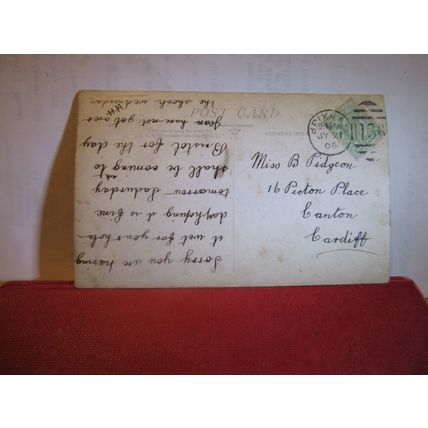 POST CARD
Sorry you are having
it wet for your hols
day hoping it is fine
tomorrow Saturday
shall be coming to
Bristol for the day
Jean have not got over
the shock wednesday
Miss B Pidgeon
16 Picton Place
Canton
Cardiff
BRIXHAM
JY 21
06